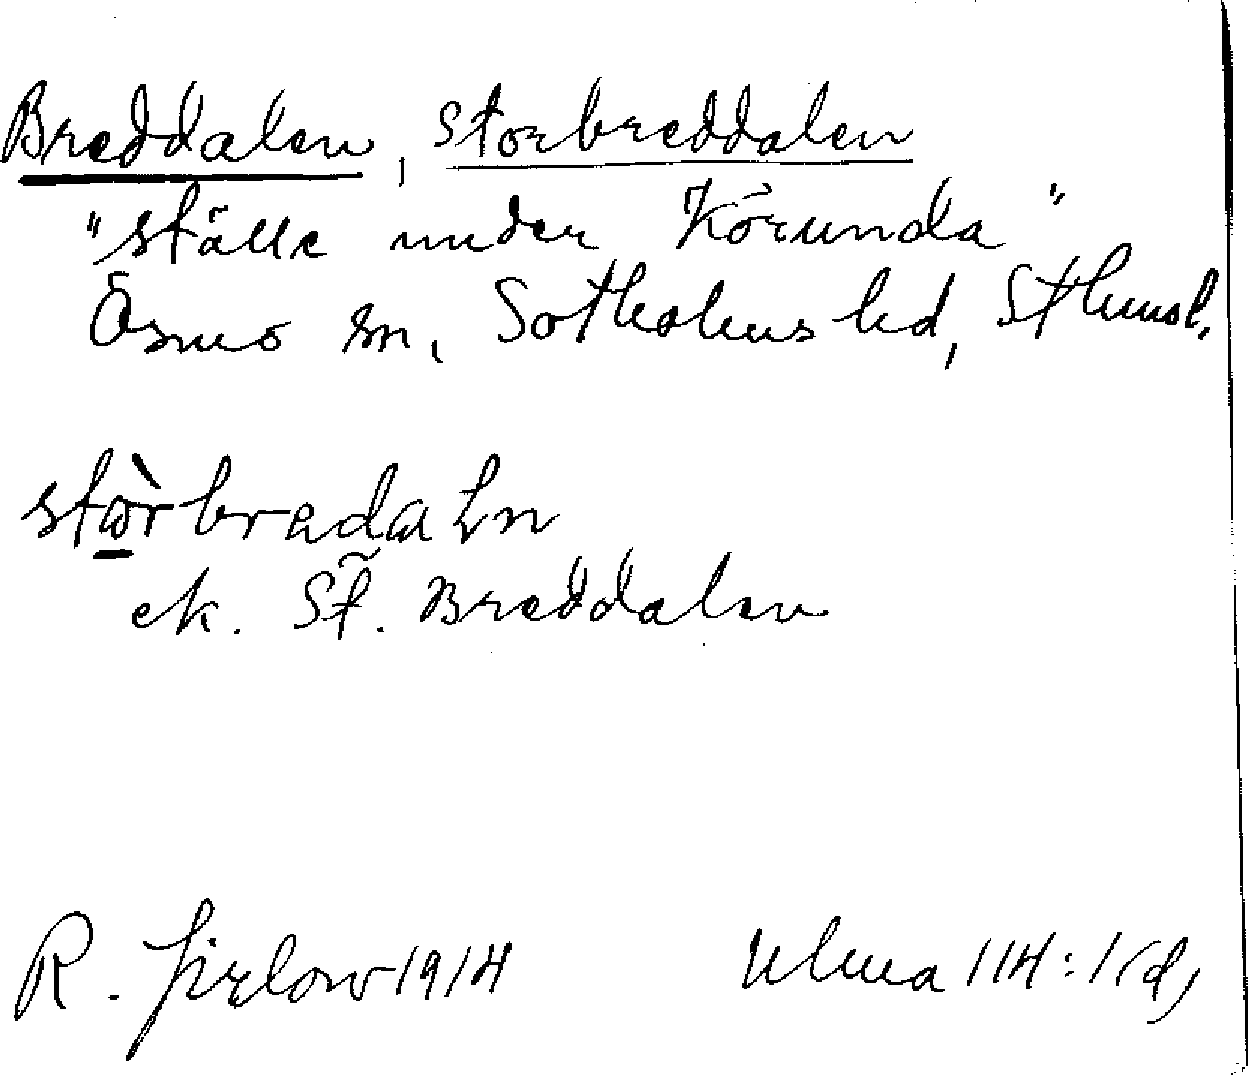 Breddalen, Storbreddalen
"ställe under Körunda"
Ösmo sn, Sotholms hd, Sthmsl.
ek. St. Breddalen
R. Jirlow 1914
Ulma 114:1